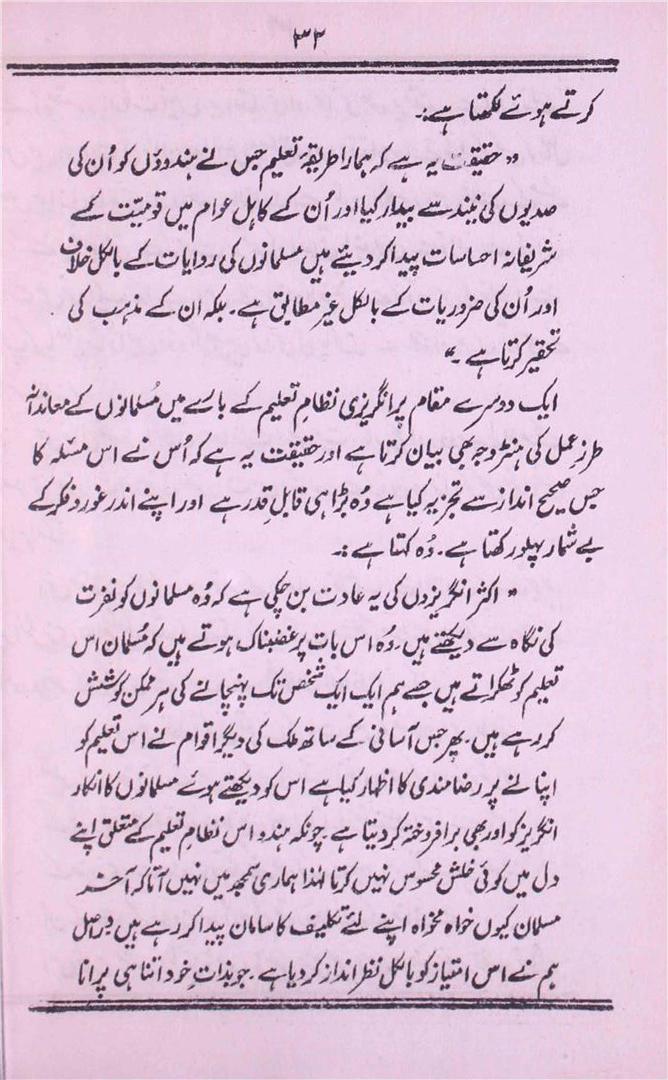 ۳۲
کرتے ہوئے لکھتا ہے:۔
” حقیقت یہ ہے کہ ہمارا طریقۂ تعلیم جس نے ہندوؤں کو اُن کی
صدیوں کی نیند سے بیدار کیا اور اُن کے کاہل عوام میں قومیّت کے
شریفانہ احساسات پیدا کر دیئے ہیں مسلمانوں کی روایات کے بالکل خلاف
اور اُن کی ضروریات کے بالکل غیر مطابق ہے۔ بلکہ ان کے مذہب کی
تحقیر کرتا ہے ۔“
ایک دوسرے مقام پر انگریزی نظامِ تعلیم کے بارے میں مُسلمانوں کے معاندانہ
طرزِ عمل کی ہنٹر وجہ بھی بیان کرتا ہے اور حقیقت یہ ہے کہ اُس نے اس مسئلہ کا
جس صحیح انداز سے تجزیہ کیا ہے وُہ بڑا ہی قابلِ قدر ہے اور اپنے اندر غور و فکر کے
بے شمار پہلو رکھتا ہے۔ وُہ کہتا ہے :۔
” اکثر انگریزوں کی یہ عادت بن چکی ہے کہ وُہ مسلمانوں کو نفرت
کی نگاہ سے دیکھتے ہیں۔ وُہ اس بات پر غضبناک ہوتے ہیں کہ مُسلمان اس
تعلیم کو ٹھکراتے ہیں جسے ہم ایک ایک شخص تک پہنچانے کی ہر ممکن کوشش
کر رہے ہیں۔ پھر جس آسانی کے ساتھ ملک کی دیگر اقوام نے اس تعلیم کو
اپنانے پر رضامندی کا اظہار کیا ہے اس کو دیکھتے ہوئے مسلمانوں کا انکار
انگریز کو اور بھی برافروختہ کر دیتا ہے۔ چونکہ ہندو اس نظامِ تعلیم کے متعلق اپنے
دل میں کوئی خلش محسوس نہیں کرتا لہٰذا ہماری سمجھ میں نہیں آتا کہ آخر
مسلمان کیوں خواہ مخواہ اپنے لئے تکلیف کا سامان پیدا کر رہے ہیں دراصل
ہم نے اس امتیاز کو بالکل نظر انداز کر دیا ہے۔ جو بذاتِ خود اتنا ہی پرانا